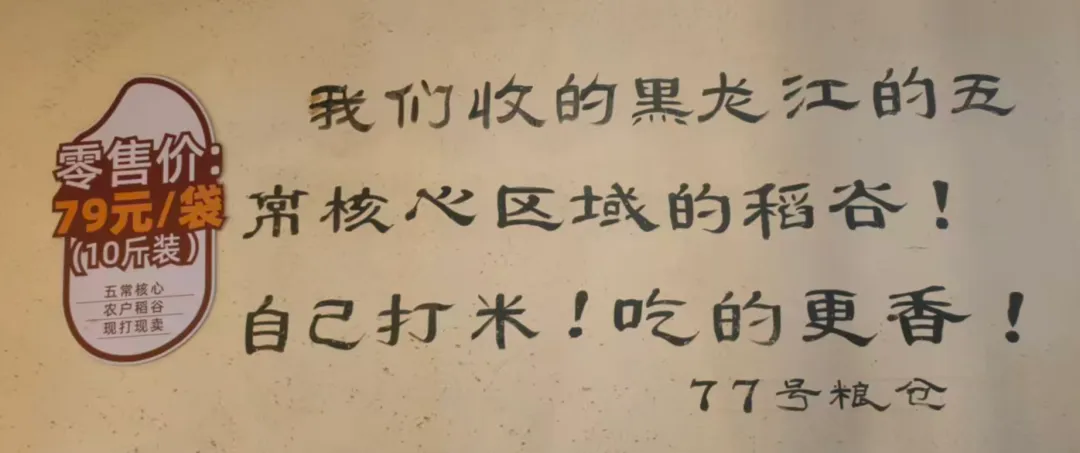 零售价:
79元/袋
(10斤装)
五常核心
农户稻谷
现打现卖
我们收的黑龙江的五
常核心区域的稻谷！
自己打米！吃的更香！
77号粮仓